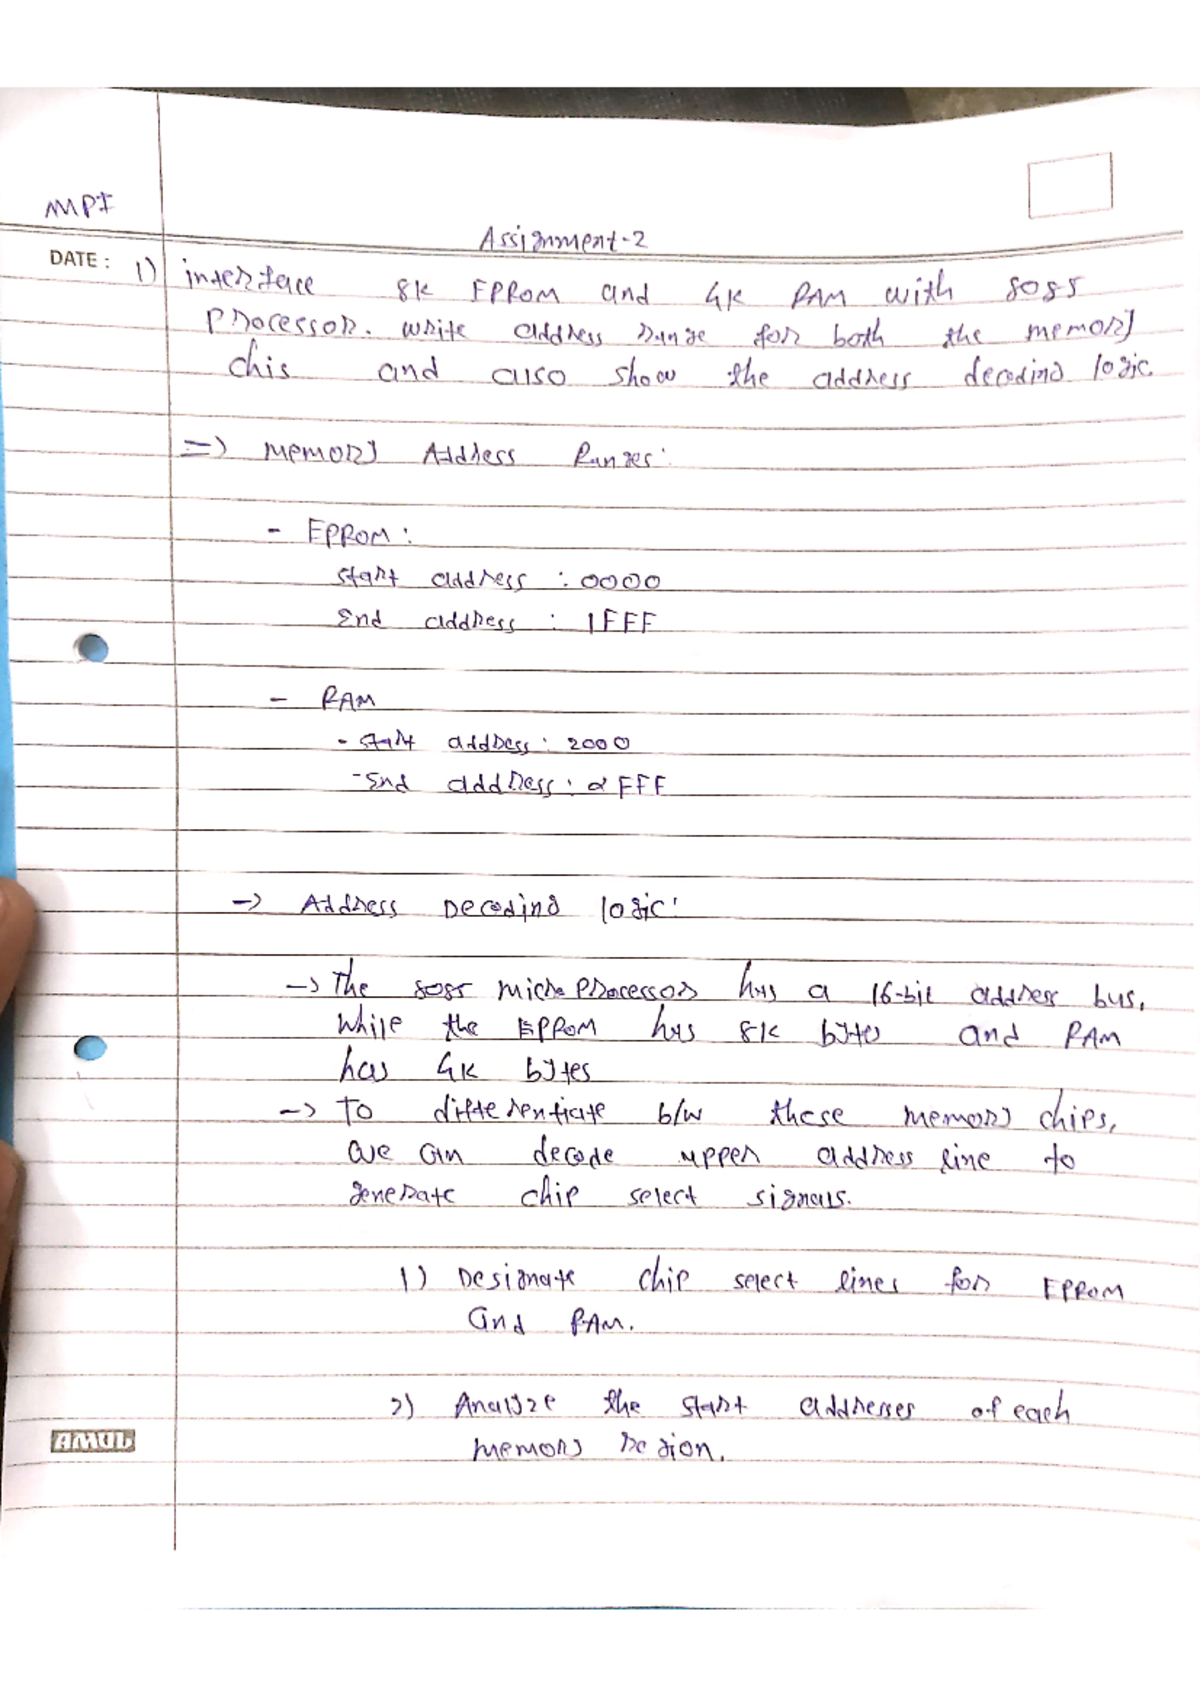 MPI
Assignment-2
DATE :
1) interface 8K EPROM and 4K RAM with 8085
processor. write address range for both the memory
chis and also show the address decoding logic
=> Memory Address Ranges:
- EPROM :
start address : 0000
End address : 1FFF
- RAM
- start address : 2000
- End address : 2FFF
-> Address Decoding logic:
-> The 8085 microprocessor has a 16-bit address bus,
while the EPROM has 8K bytes and RAM
has 4K bytes
-> To differentiate b/w these memory chips,
we can decode upper address line to
generate chip select signals.
1) Designate chip select lines for EPROM
and RAM.
2) Analyze the start addresses of each
memory region.
AMUL